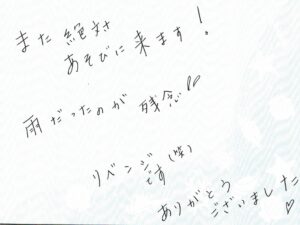 また絶対
あそびに来ます!
雨だったのが残念
リベンジ
です(笑)
ありがとう
ございました♡